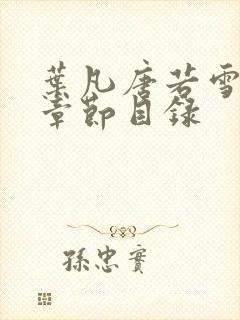 葉凡唐若雪
章節目錄
孫忠實